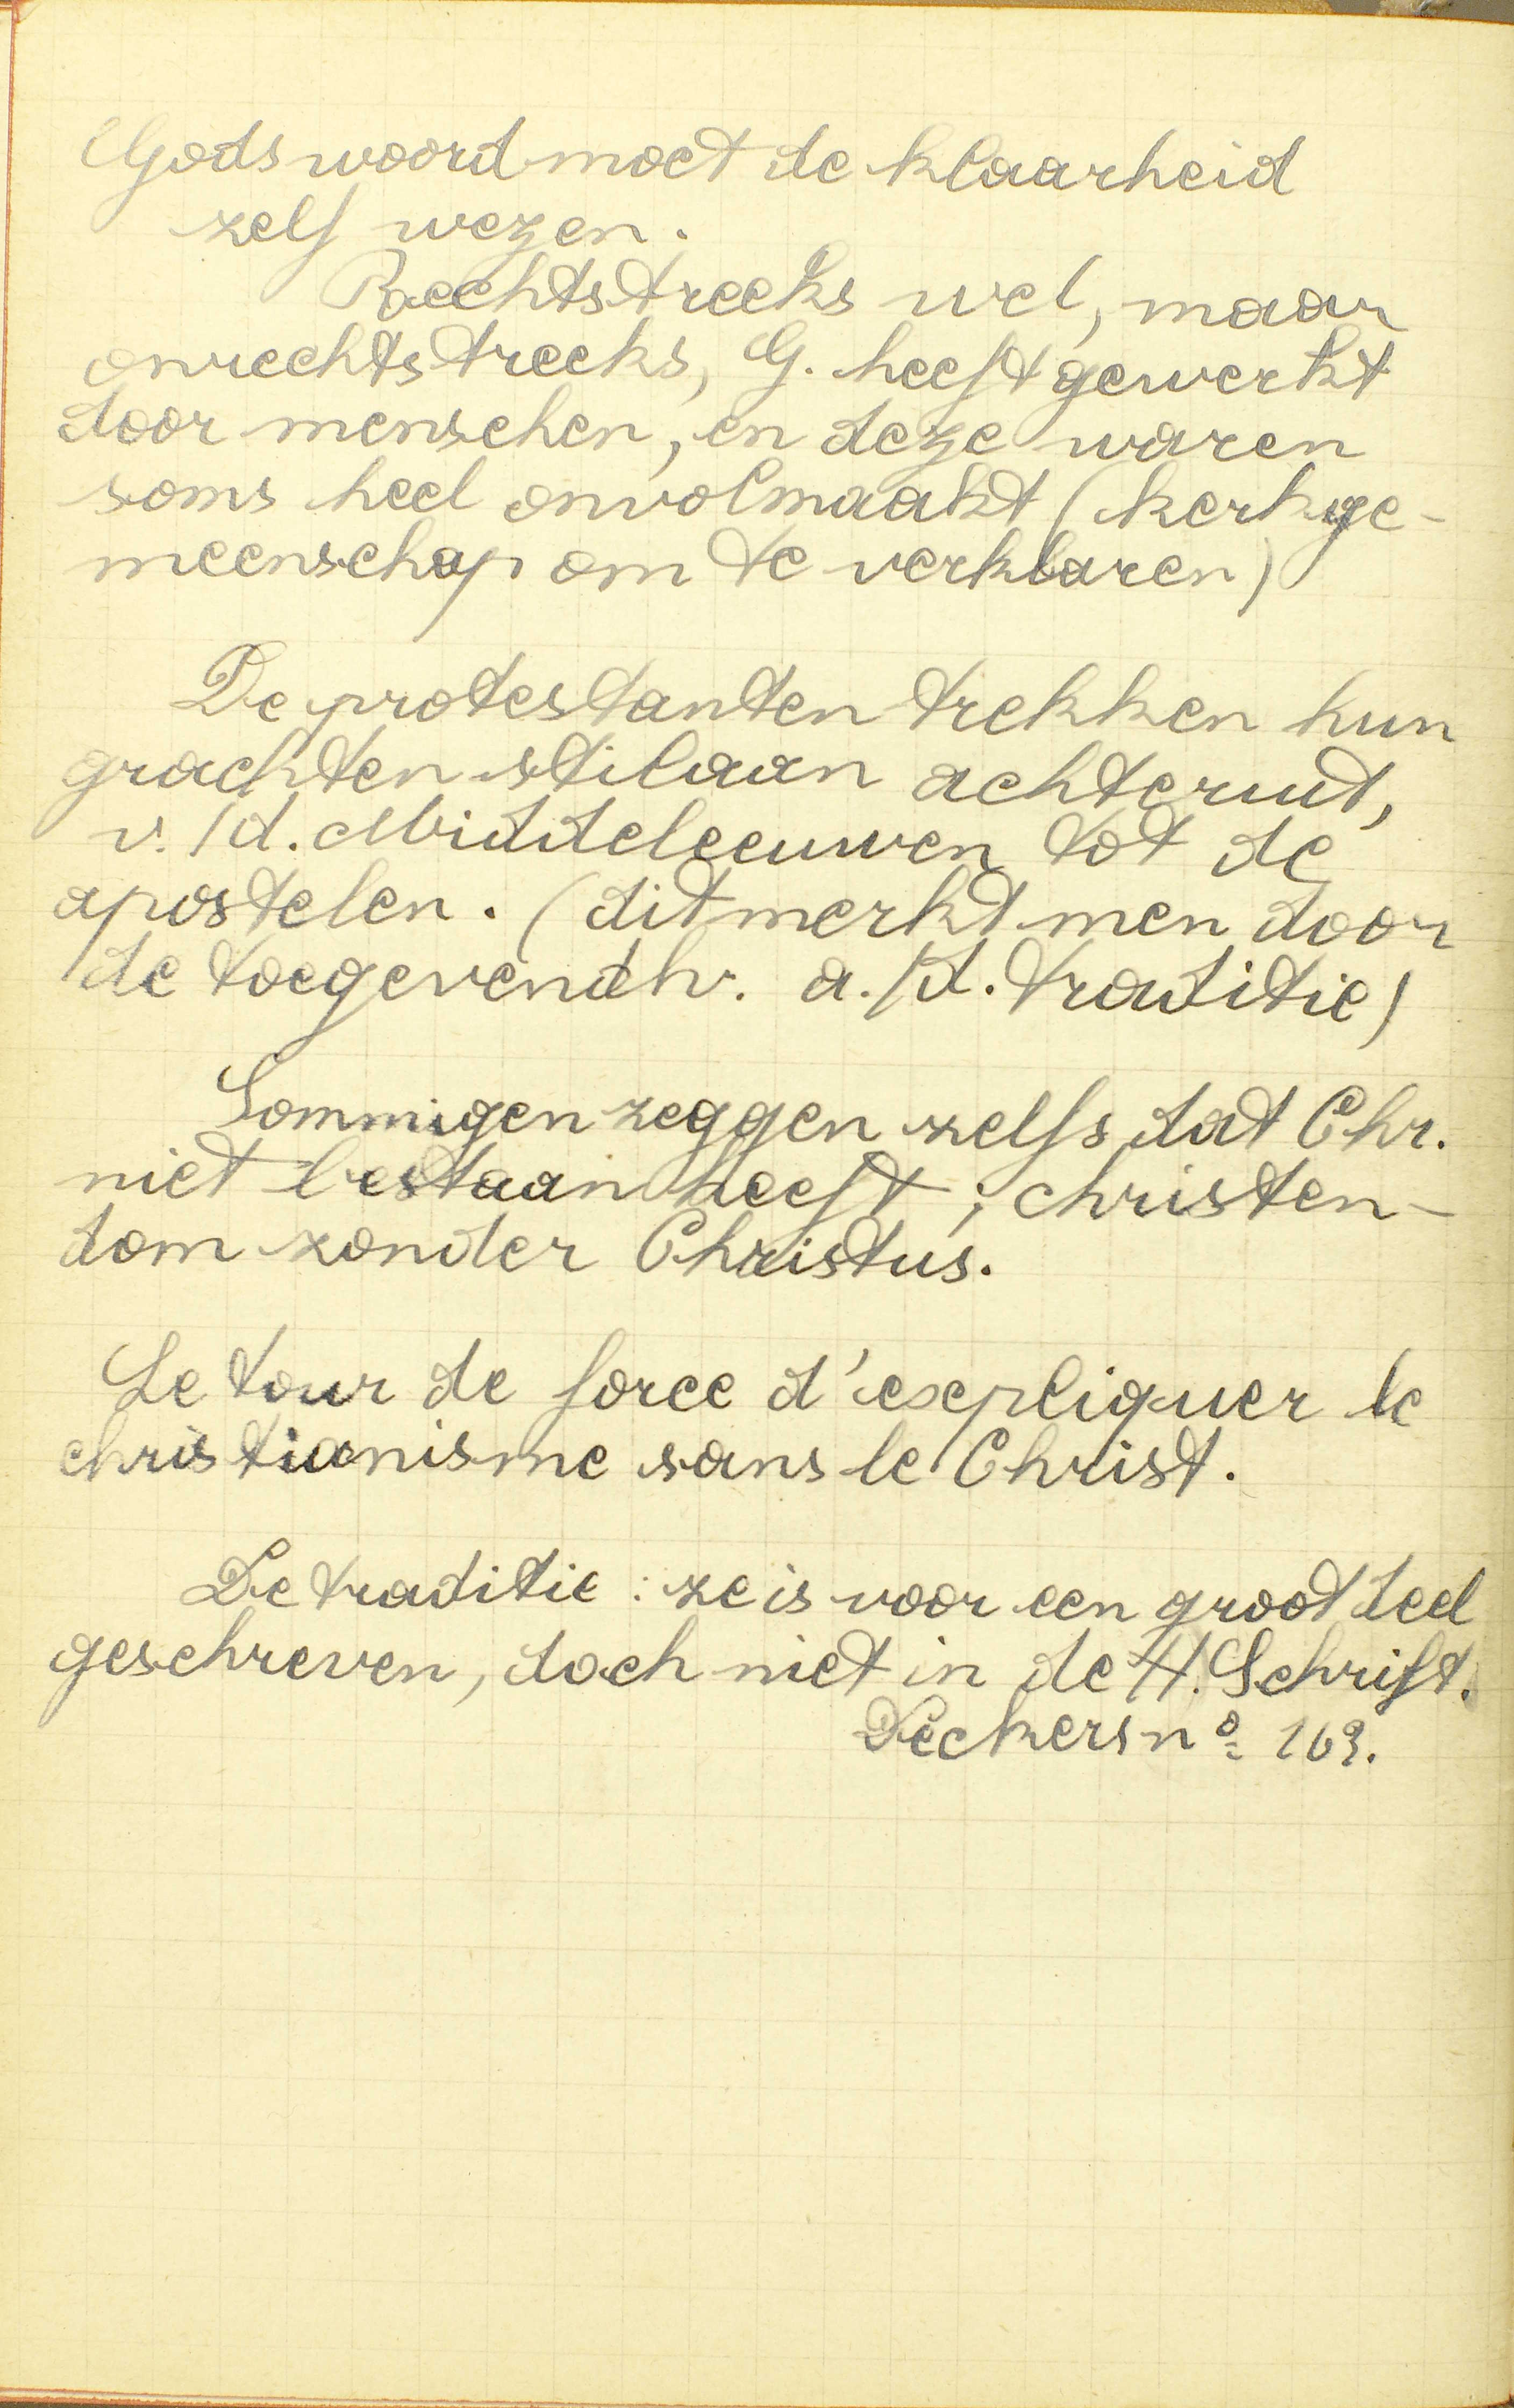 Gods woord moet de klaarheid
zelf wezen.
Rechtstreeks wel, maar
onrechtstreeks, G. heeft gewerkt
door menschen, en deze waren
soms heel onvolmaakt (kerkge-
meenschap om te verklaren)
De protestanten trekken hun
grachten stilaan achteruit,
v./d. Middeleeuwen tot de
apostelen. (dit merkt men door
de toegevendh. a./d. traditie)
Sommigen zeggen zelfs dat Chr.
niet bestaan heeft; christen-
dom zonder Christus.
Le tour de force d'expliquer le
christianisme sans le Christ.
De traditie: ze is voor een groot deel
geschreven, doch niet in de H. Schrift.
Deckers nº 169.